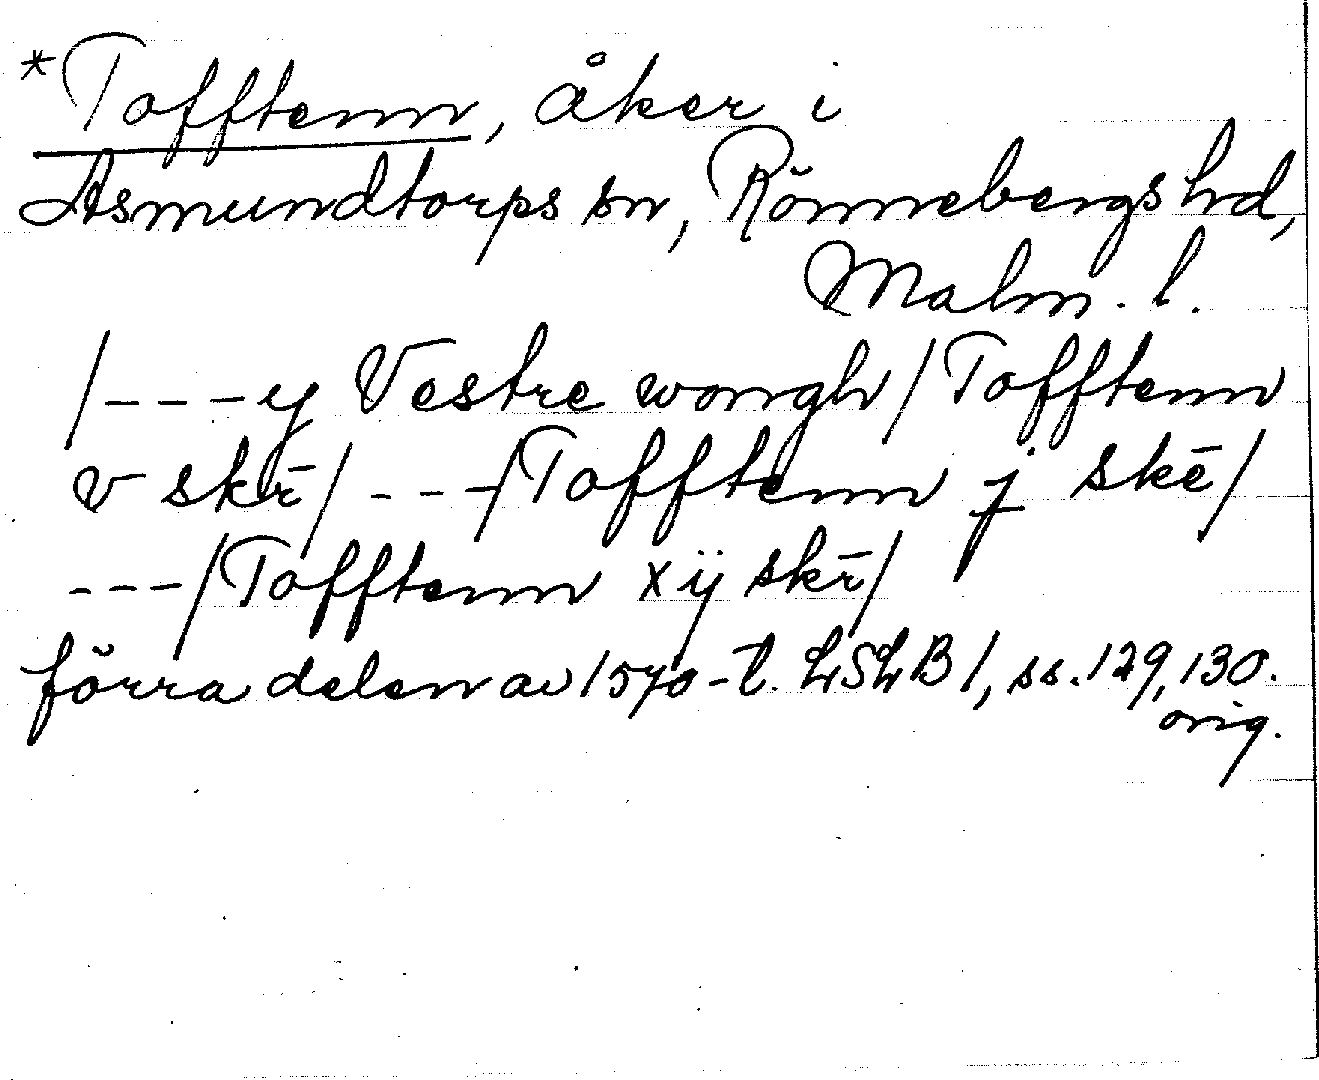 *Tofftenn, åker i
Asmundtorps sn, Rönnebergs hd,
Malm. l.
/---y Vestre wongh/Tofftenn
v skr̄/ ---/Tofftenn j skē/
---/Tofftenn xij skr̄/
förra delen av 1570-t. LSLB 1, ss. 129, 130.
orig.